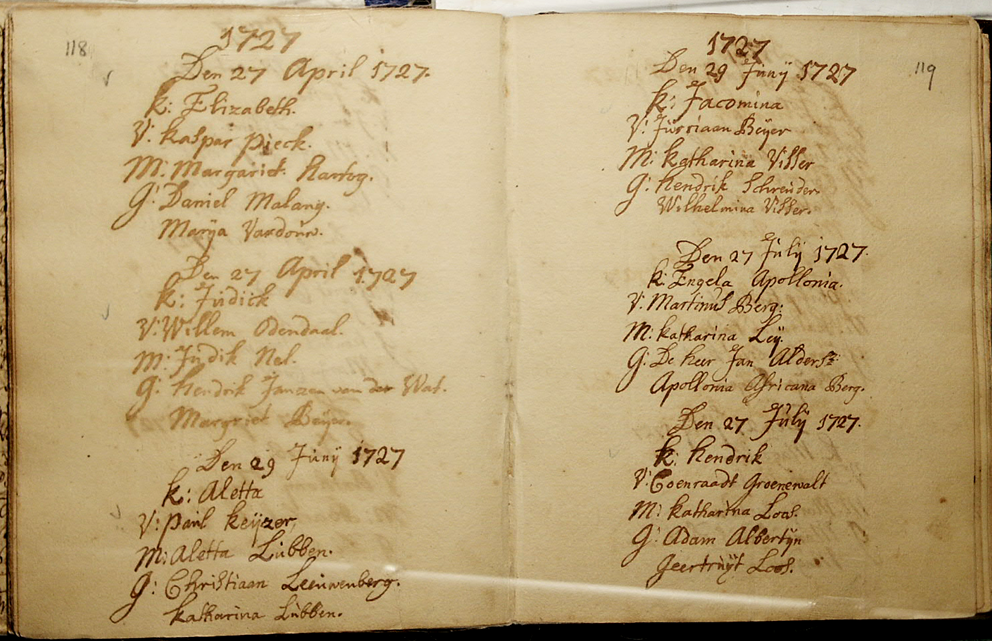 118
1727
Den 27 April 1727.
k: Elizabeth.
V: kaspar Pieck.
M: Margariet Hartog.
G: Daniel Malang.
Marÿa Vardouw.
Den 27 April 1727
k: Jŭdick
V: Willem Odendaal.
M: Jŭdik Nel.
G: Hendrik Janzen van der Wat.
Margriet Beÿer.
Den 29 Junÿ 1727
k: Aletta
V: Paul keÿzer.
M: Aletta Lŭbben.
G: Christiaan Leeuwenberg.
katharina Lŭbben.
119
1727
Den 29 Junÿ 1727
k: Jacomina
V: Jŭrriaan Beÿer
M: katharina Visser
G: Hendrik Schreuder
Wilhelmina Visser.
Den 27 Julÿ 1727.
k: Engela Apollonia.
V: Martinus Berg:
M: katharina Leÿ.
G: De heer Jan Aldersz:
Apollonia Africana Berg.
Den 27 Julÿ 1727.
k: Hendrik
V: Coenraadt Groenewalt
M: katharina Loos.
G: Adam Albertÿn
Geertruÿt Loos.